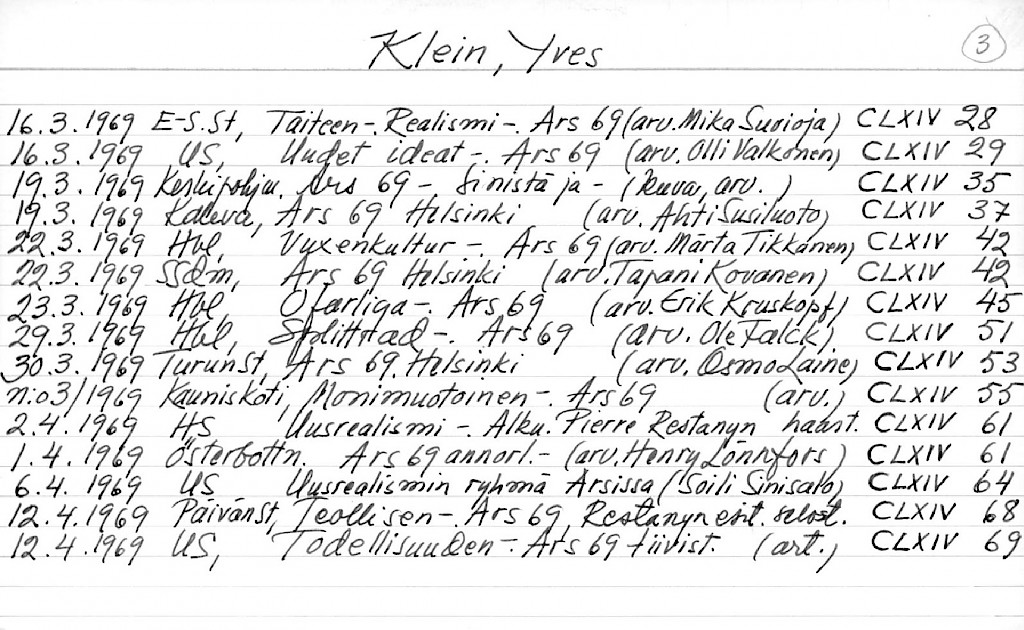 Klein, Yves
3
16.3.1969 E-S.St, Taiteen-. Realismi-. Ars 69 (arv. Mika Suvioja) CLXIV 28
16.3.1969 US, Uudet ideat-. Ars 69 (arv. Olli Valkonen) CLXIV 29
19.3.1969 Keskipohjm. Ars 69-. Sinistä ja- (kuva, arv. ) CLXIV 35
19.3.1969 Kaleva, Ars 69 Helsinki (arv. Ahti Susiluoto) CLXIV 37
22.3.1969 Hbl, Vuxenkultur-. Ars 69 (arv. Märta Tikkanen) CLXIV 42
22.3.1969 SSdm, Ars 69 Helsinki (arv. Tapani Kovanen) CLXIV 42
23.3.1969 Hbl Ofarliga-. Ars 69 (arv. Erik Kruskopf) CLXIV 45
29.3.1969 Hbl, Splittrad-. Ars 69 (arv. Ole Falck) CLXIV 51
30.3.1969 TurunSt, Ars 69. Helsinki (arv. Osmo Laine) CLXIV 53
n:o 3/1969 Kauniskoti, Monimuotoinen-. Ars 69 (arv.) CLXIV 55
2.4.1969 HS Uusrealismi-. Alku. Pierre Restanyn haast. CLXIV 61
1.4.1969 Österbottn. Ars 69 annorl.- (arv. Henry Lönnfors) CLXIV 61
6.4.1969 US Uusrealismin ryhmä Arsissa (Soili Sinisalo) CLXIV 64
12.4.1969 PäivänSt, Teollisen-. Ars 69, Restanyn esit. selost. CLXIV 68
12.4.1969 US, Todellisuuden-. Ars 69 tiivist. (art.) CLXIV 69